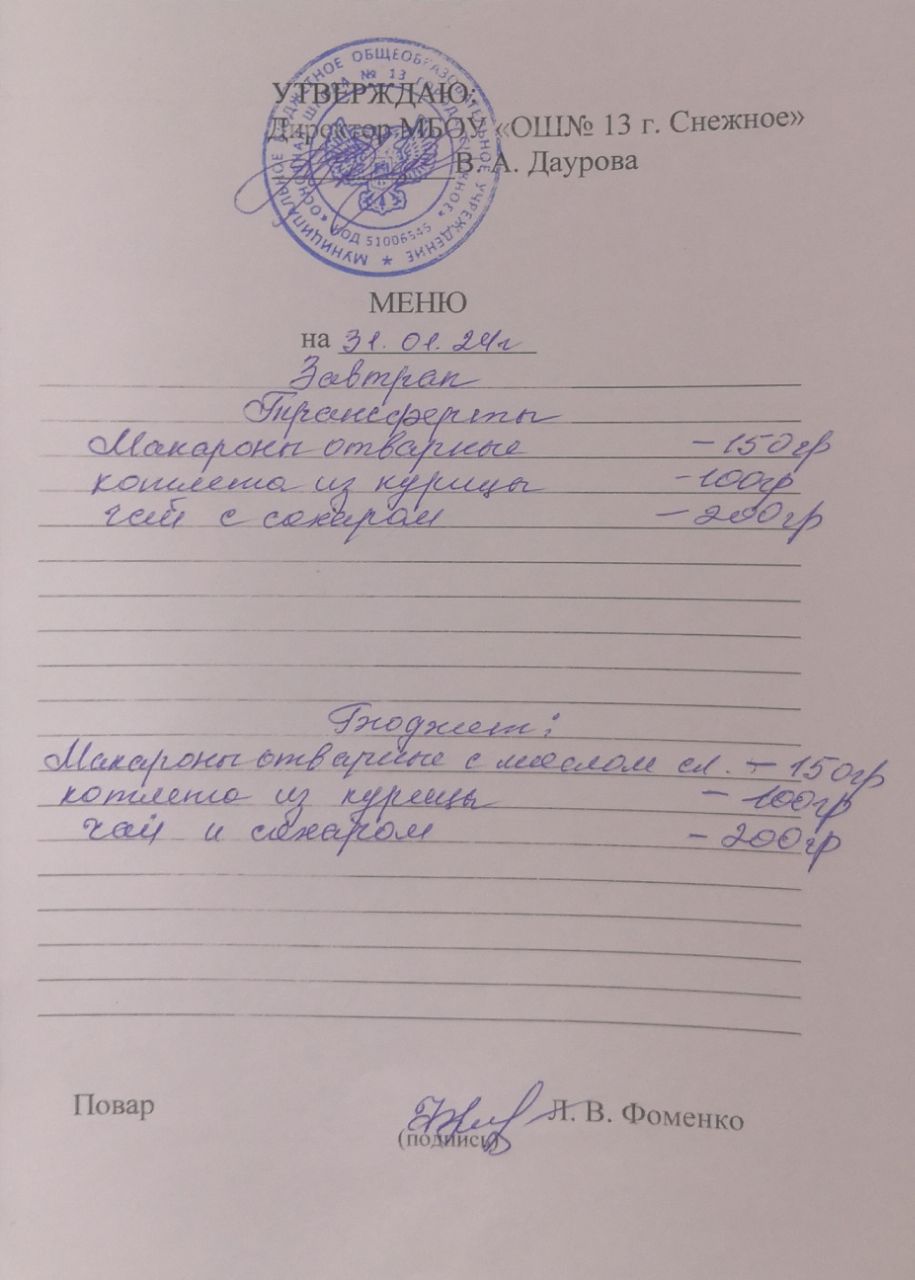 УТВЕРЖДАЮ:
Директор МБОУ «ОШ№ 13 г. Снежное»
В. А. Даурова
МУНИЦИПАЛЬНОЕ БЮДЖЕТНОЕ ОБЩЕОБРАЗОВАТЕЛЬНОЕ УЧРЕЖДЕНИЕ
«ОСНОВНАЯ ШКОЛА № 13 ГОРОДА СНЕЖНОЕ»
КОД 51006545
МЕНЮ
на 31.01.24г
Завтрак
Трансферты
Макароны отварные – 150гр
котлета из курицы – 100гр
чай с сахаром – 200гр
Бюджет:
Макароны отварные с маслом сл. – 150гр
котлета из курицы – 100гр
чай и сахаром – 200гр
Повар Л. В. Фоменко
(подпись)